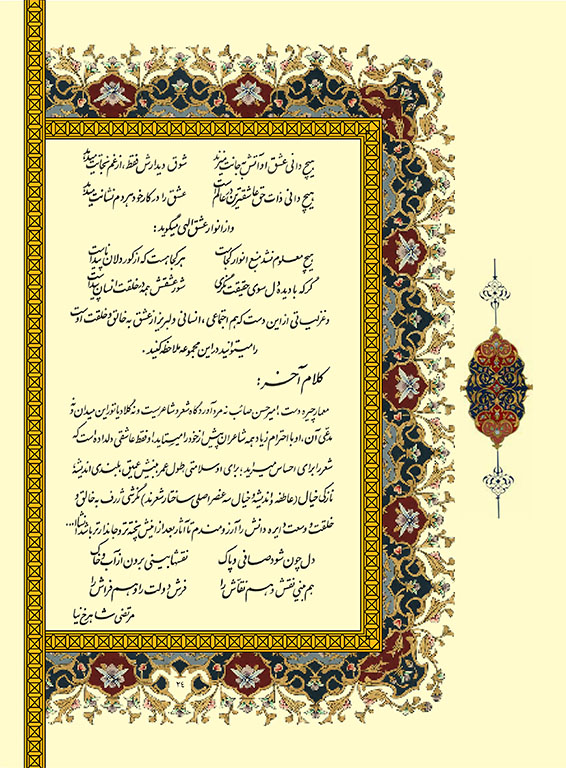 هیچ دانی عشق او آتش به جانت میزند شوق دیدارش فقط، از غم نجاتت میدهد
هیچ دانی ذات حق عاشقترین عالم است عشق را در کار خود هر دم نشانت میدهد
و از انوار عشق الهی میگوید :
هیچ معلوم نشد منبع انوار کجاست هر کجا هست که از کور دلان ناپیداست
گر که با دیده دل سوی حقیقت نگری شور عشقش همه در خلقت انسان پیداست
و غزلیاتی از این دست که هم اجتماعی ، انسانی و لبریز از عشق به خالق و خلقت اوست
را میتوانید در این مجموعه ملاحظه کنید .
کلام آخر :
معمار چیره دست امیر حسن صائب نه مرد آوردگاه شعر و شاعریست و نه کلاه دار تور این میدان و
مدعی آن ، او با احترام زیاد همه شاعران پیش از خود را میستاید او فقط عاشقی دلداده است که
شعر را برای احساس میسراید ؛ برای او سلامتی و طول عمر و بینش عمیق ، بلندی اندیشه
نازکی خیال (عاطفه و اندیشه و خیال سه عنصر اصلی ساختار شعرند) نگرشی ژرف به خالق و
خلقت و وسعت دایره دانش را آرزومندم تا آثار بعد از اینش پخته تر و جاندارتر باشد انشاا...
دل چون شود صافی و پاک نقشها بینی برون از آب و خاک
هم ببینی نقش و هم نقاش را فرش دولت را و هم فراش را
مرتضی شاهرخ نیا
٢٤